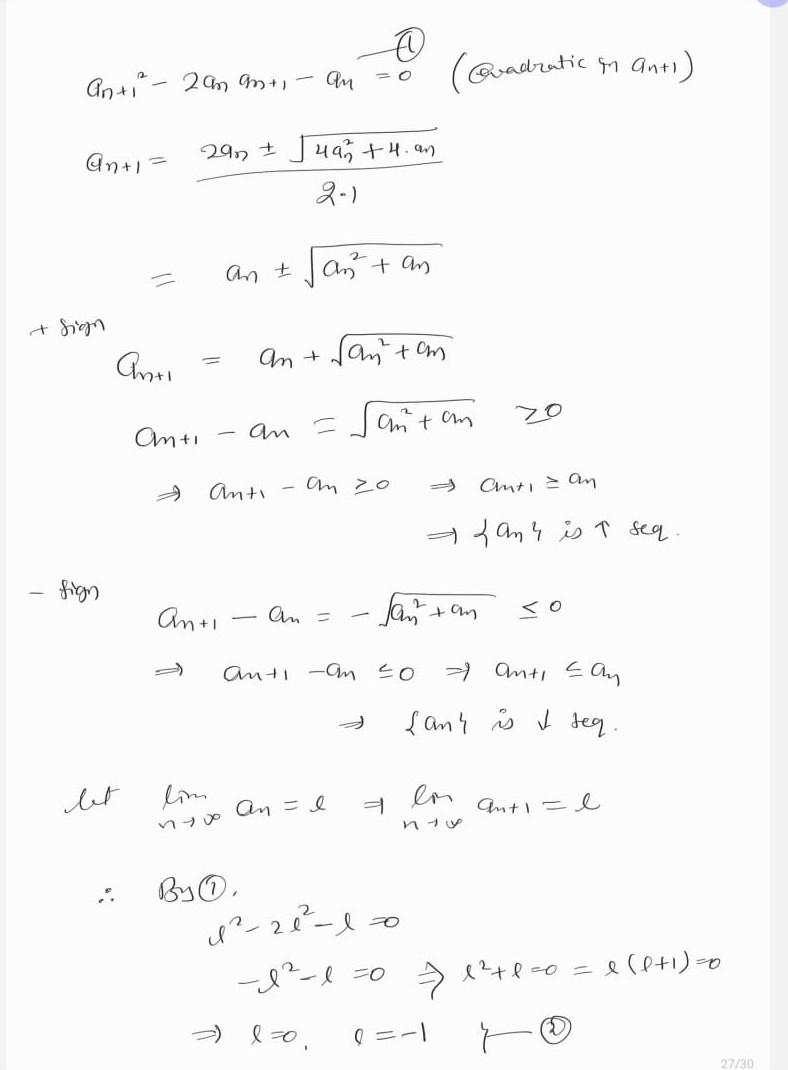 ①
aₙ₊₁² - 2aₙ aₙ₊₁ - aₙ = 0 (Quadratic in aₙ₊₁)
aₙ₊₁ = (2aₙ ± √(4aₙ² + 4.aₙ)) / 2.1
= aₙ ± √(aₙ² + aₙ)
+ sign
aₙ₊₁ = aₙ + √(aₙ² + aₙ)
aₙ₊₁ - aₙ = √(aₙ² + aₙ) ≥0
⇒ aₙ₊₁ - aₙ ≥0 ⇒ aₙ₊₁ ≥ aₙ
⇒ {aₙ} is ↑ seq.
- sign
aₙ₊₁ - aₙ = - √(aₙ² + aₙ) ≤ 0
⇒ aₙ₊₁ - aₙ ≤0 ⇒ aₙ₊₁ ≤ aₙ
⇒ {aₙ} is ↓ seq.
let lim n→∞ aₙ = l ⇒ lim n→∞ aₙ₊₁ = l
∴ By ①,
l² - 2l² - l =0
-l² - l =0 ⇒ l² + l =0 = l(l+1)=0
⇒ l=0, l=-1 } — ②
27/30